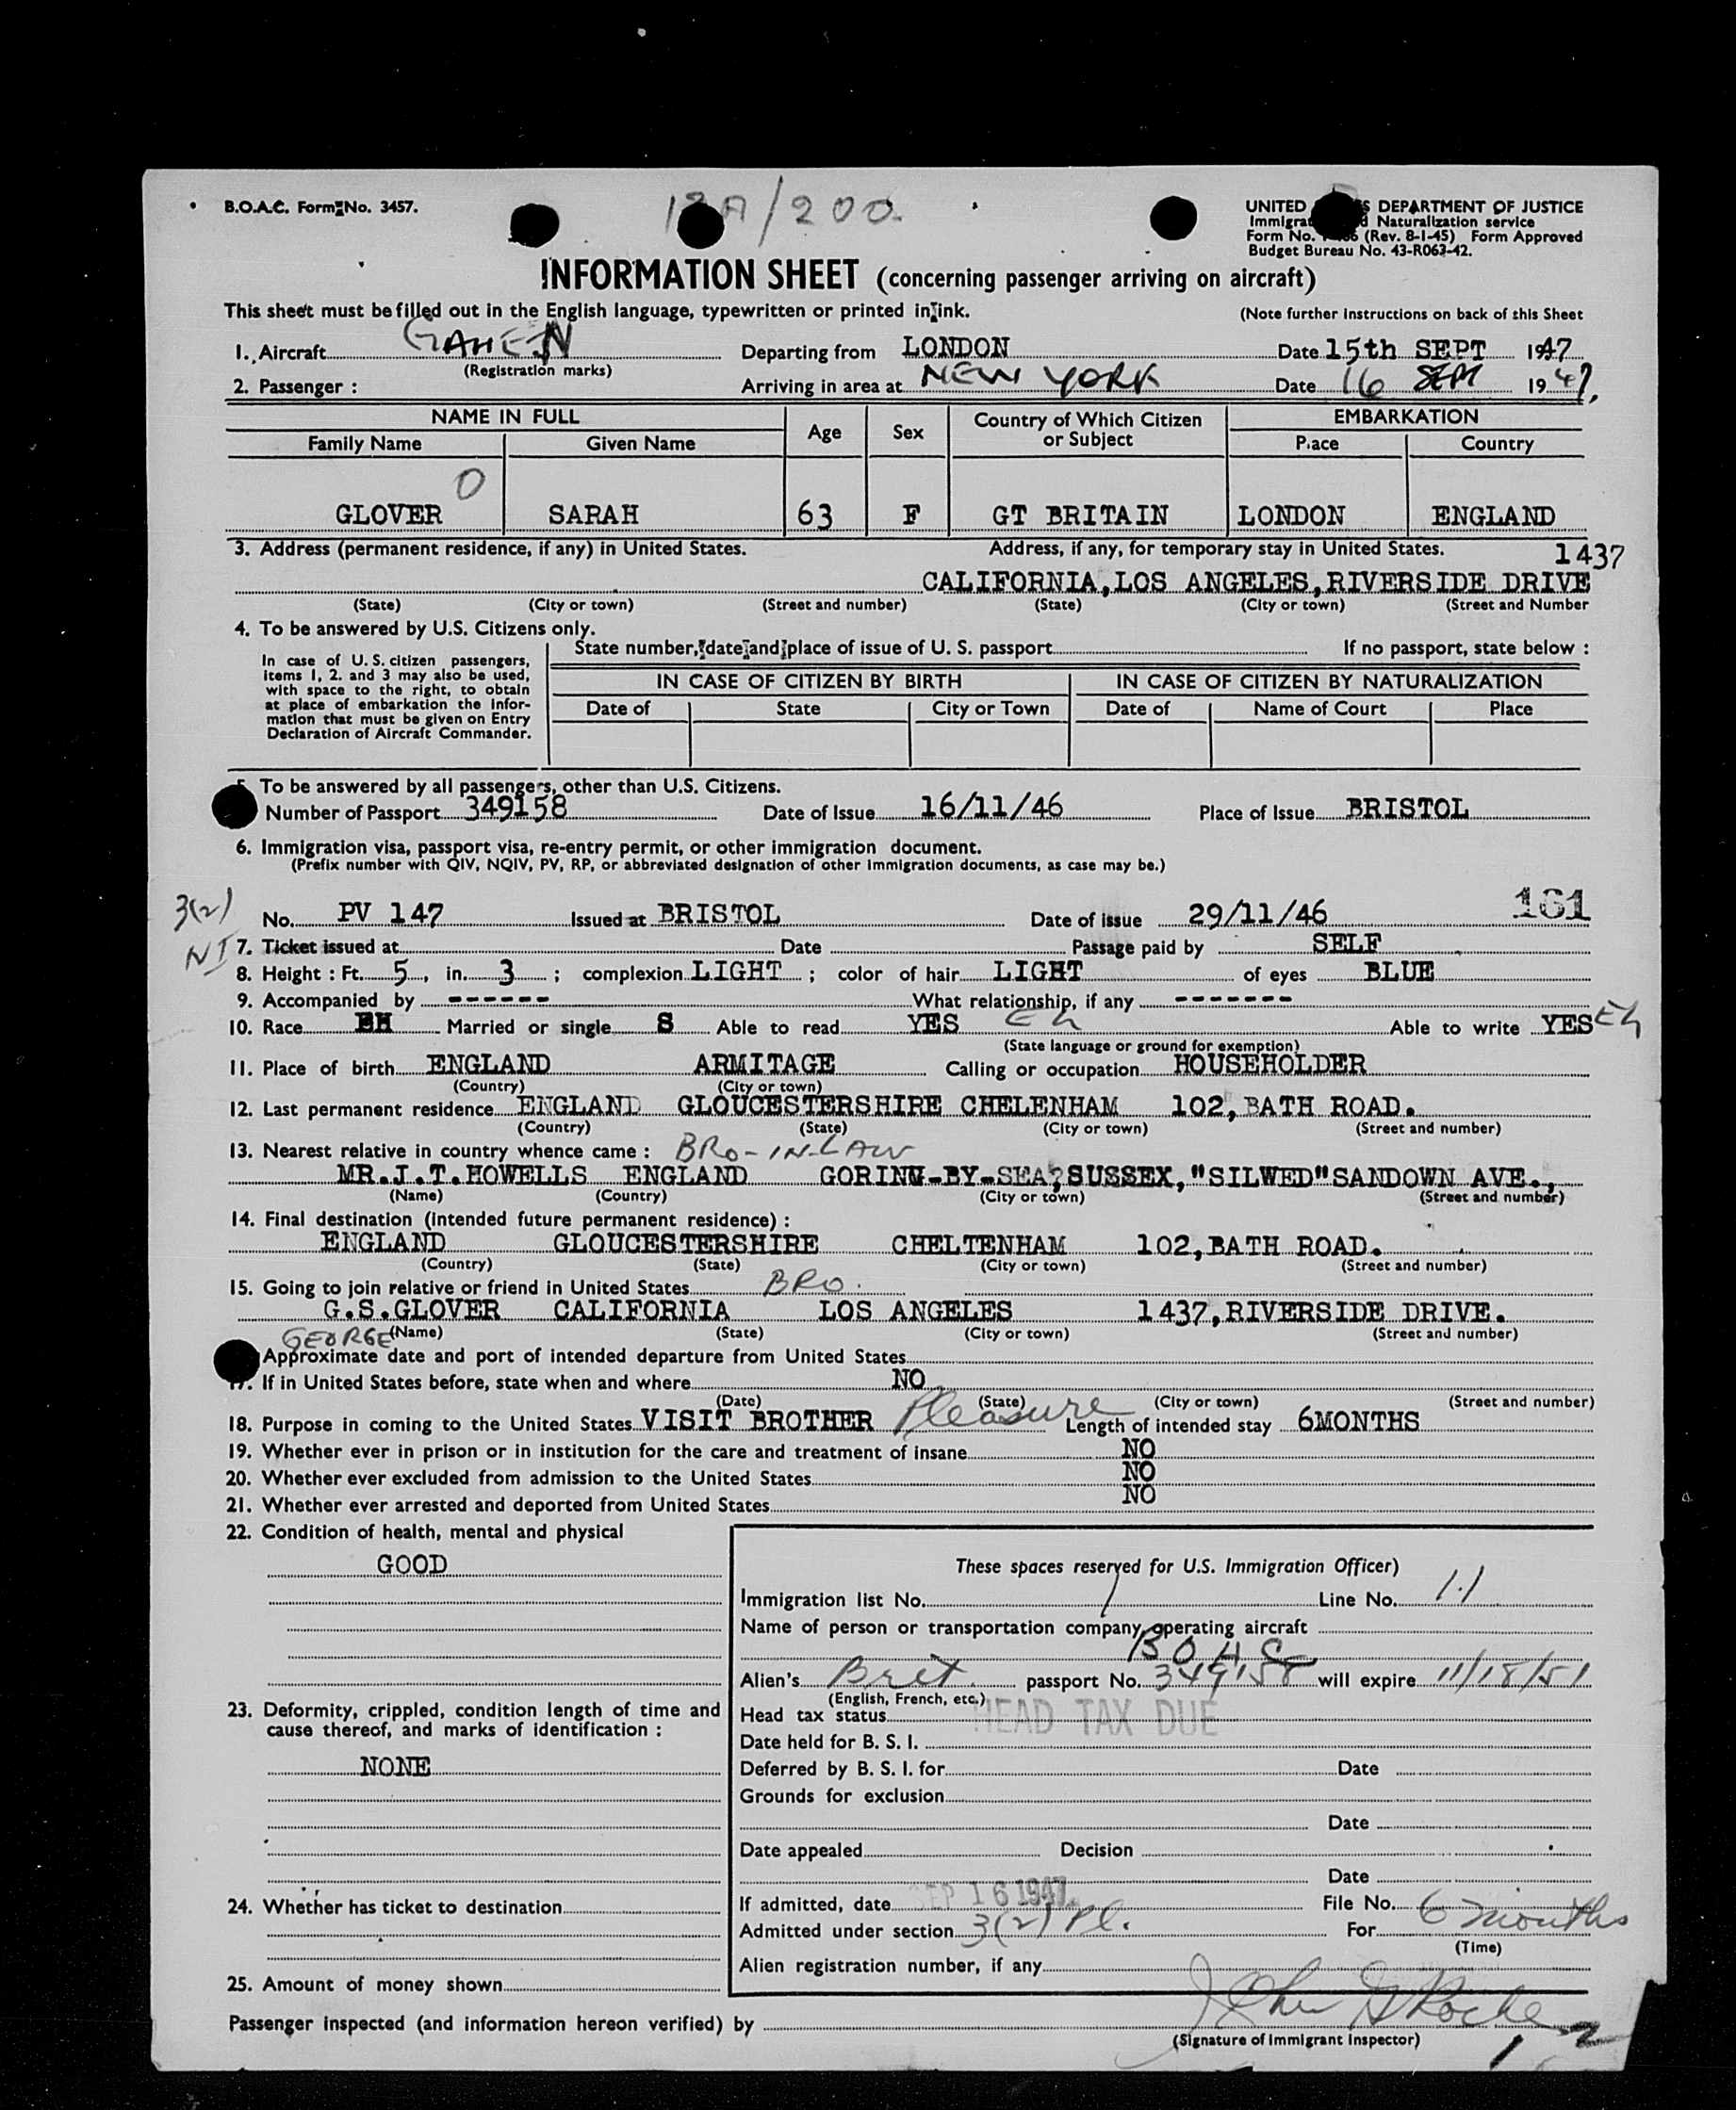 B.O.A.C. Form No. 3457.
/200
UNITED DEPARTMENT OF JUSTICE
Naturalization service
Form No. (Rev. 8-1-45) Form Approved
Budget Bureau No. 43-R063-42.
INFORMATION SHEET (concerning passenger arriving on aircraft)
This sheet must be filled out in the English language, typewritten or printed in ink.
(Note further instructions on back of this Sheet
1. Aircraft GAHEN Departing from LONDON Date 15th SEPT 1947
(Registration marks)
2. Passenger : Arriving in area at NEW YORK Date 16 SEPT 1947.
NAME IN FULL Age Sex Country of Which Citizen or Subject EMBARKATION
Family Name Given Name Place Country
O
GLOVER SARAH 63 F GT BRITAIN LONDON ENGLAND
3. Address (permanent residence, if any) in United States. Address, if any, for temporary stay in United States. 1437
CALIFORNIA,LOS ANGELES,RIVERSIDE DRIVE
(State) (City or town) (Street and number) (State) (City or town) (Street and Number
4. To be answered by U.S. Citizens only.
State number, date and place of issue of U. S. passport If no passport, state below :
In case of U. S. citizen passengers,
items 1, 2. and 3 may also be used,
with space to the right, to obtain
at place of embarkation the infor-
mation that must be given on Entry
Declaration of Aircraft Commander.
IN CASE OF CITIZEN BY BIRTH IN CASE OF CITIZEN BY NATURALIZATION
Date of State City or Town Date of Name of Court Place
To be answered by all passengers, other than U.S. Citizens.
Number of Passport 349158 Date of Issue 16/11/46 Place of Issue BRISTOL
6. Immigration visa, passport visa, re-entry permit, or other immigration document.
(Prefix number with QIV, NQIV, PV, RP, or abbreviated designation of other immigration documents, as case may be.)
3(2)
No. PV 147 Issued at BRISTOL Date of issue 29/11/46 161
NI
7. Ticket issued at Date Passage paid by SELF
8. Height : Ft. 5, in. 3 ; complexion LIGHT ; color of hair LIGHT of eyes BLUE
9. Accompanied by ------ What relationship, if any -------
10. Race Married or single S Able to read YES Able to write YES
(State language or ground for exemption)
11. Place of birth ENGLAND ARMITAGE Calling or occupation HOUSEHOLDER
(Country) (City or town)
12. Last permanent residence ENGLAND GLOUCESTERSHIRE CHELENHAM 102, BATH ROAD.
(Country) (State) (City or town) (Street and number)
13. Nearest relative in country whence came : BRO-IN-LAW
MR.J.T.HOWELLS ENGLAND GORING-BY-SEA,SUSSEX,"SILWED"SANDOWN AVE.,
(Name) (Country) (City or town) (Street and number)
14. Final destination (intended future permanent residence) :
ENGLAND GLOUCESTERSHIRE CHELTENHAM 102,BATH ROAD.
(Country) (State) (City or town) (Street and number)
15. Going to join relative or friend in United States BRO.
G.S.GLOVER CALIFORNIA LOS ANGELES 1437,RIVERSIDE DRIVE.
GEORGE (Name) (State) (City or town) (Street and number)
Approximate date and port of intended departure from United States
17. If in United States before, state when and where NO
(Date) (State) (City or town) (Street and number)
18. Purpose in coming to the United States VISIT BROTHER Pleasure Length of intended stay 6MONTHS
19. Whether ever in prison or in institution for the care and treatment of insane NO
20. Whether ever excluded from admission to the United States NO
21. Whether ever arrested and deported from United States NO
22. Condition of health, mental and physical
GOOD
23. Deformity, crippled, condition length of time and
cause thereof, and marks of identification :
NONE
24. Whether has ticket to destination
25. Amount of money shown
These spaces reserved for U.S. Immigration Officer)
Immigration list No. 1 Line No. 11
Name of person or transportation company operating aircraft
B O A C
Alien's Brit. passport No. 349158 will expire 11/18/51
(English, French, etc.)
Head tax status HEAD TAX DUE
Date held for B. S. I.
Deferred by B. S. I. for Date
Grounds for exclusion
Date
Date appealed Decision
Date
If admitted, date SEP 16 1947 File No.
Admitted under section 3(2) Pl. For 6 months
(Time)
Alien registration number, if any
Passenger inspected (and information hereon verified) by
(Signature of Immigrant Inspector)